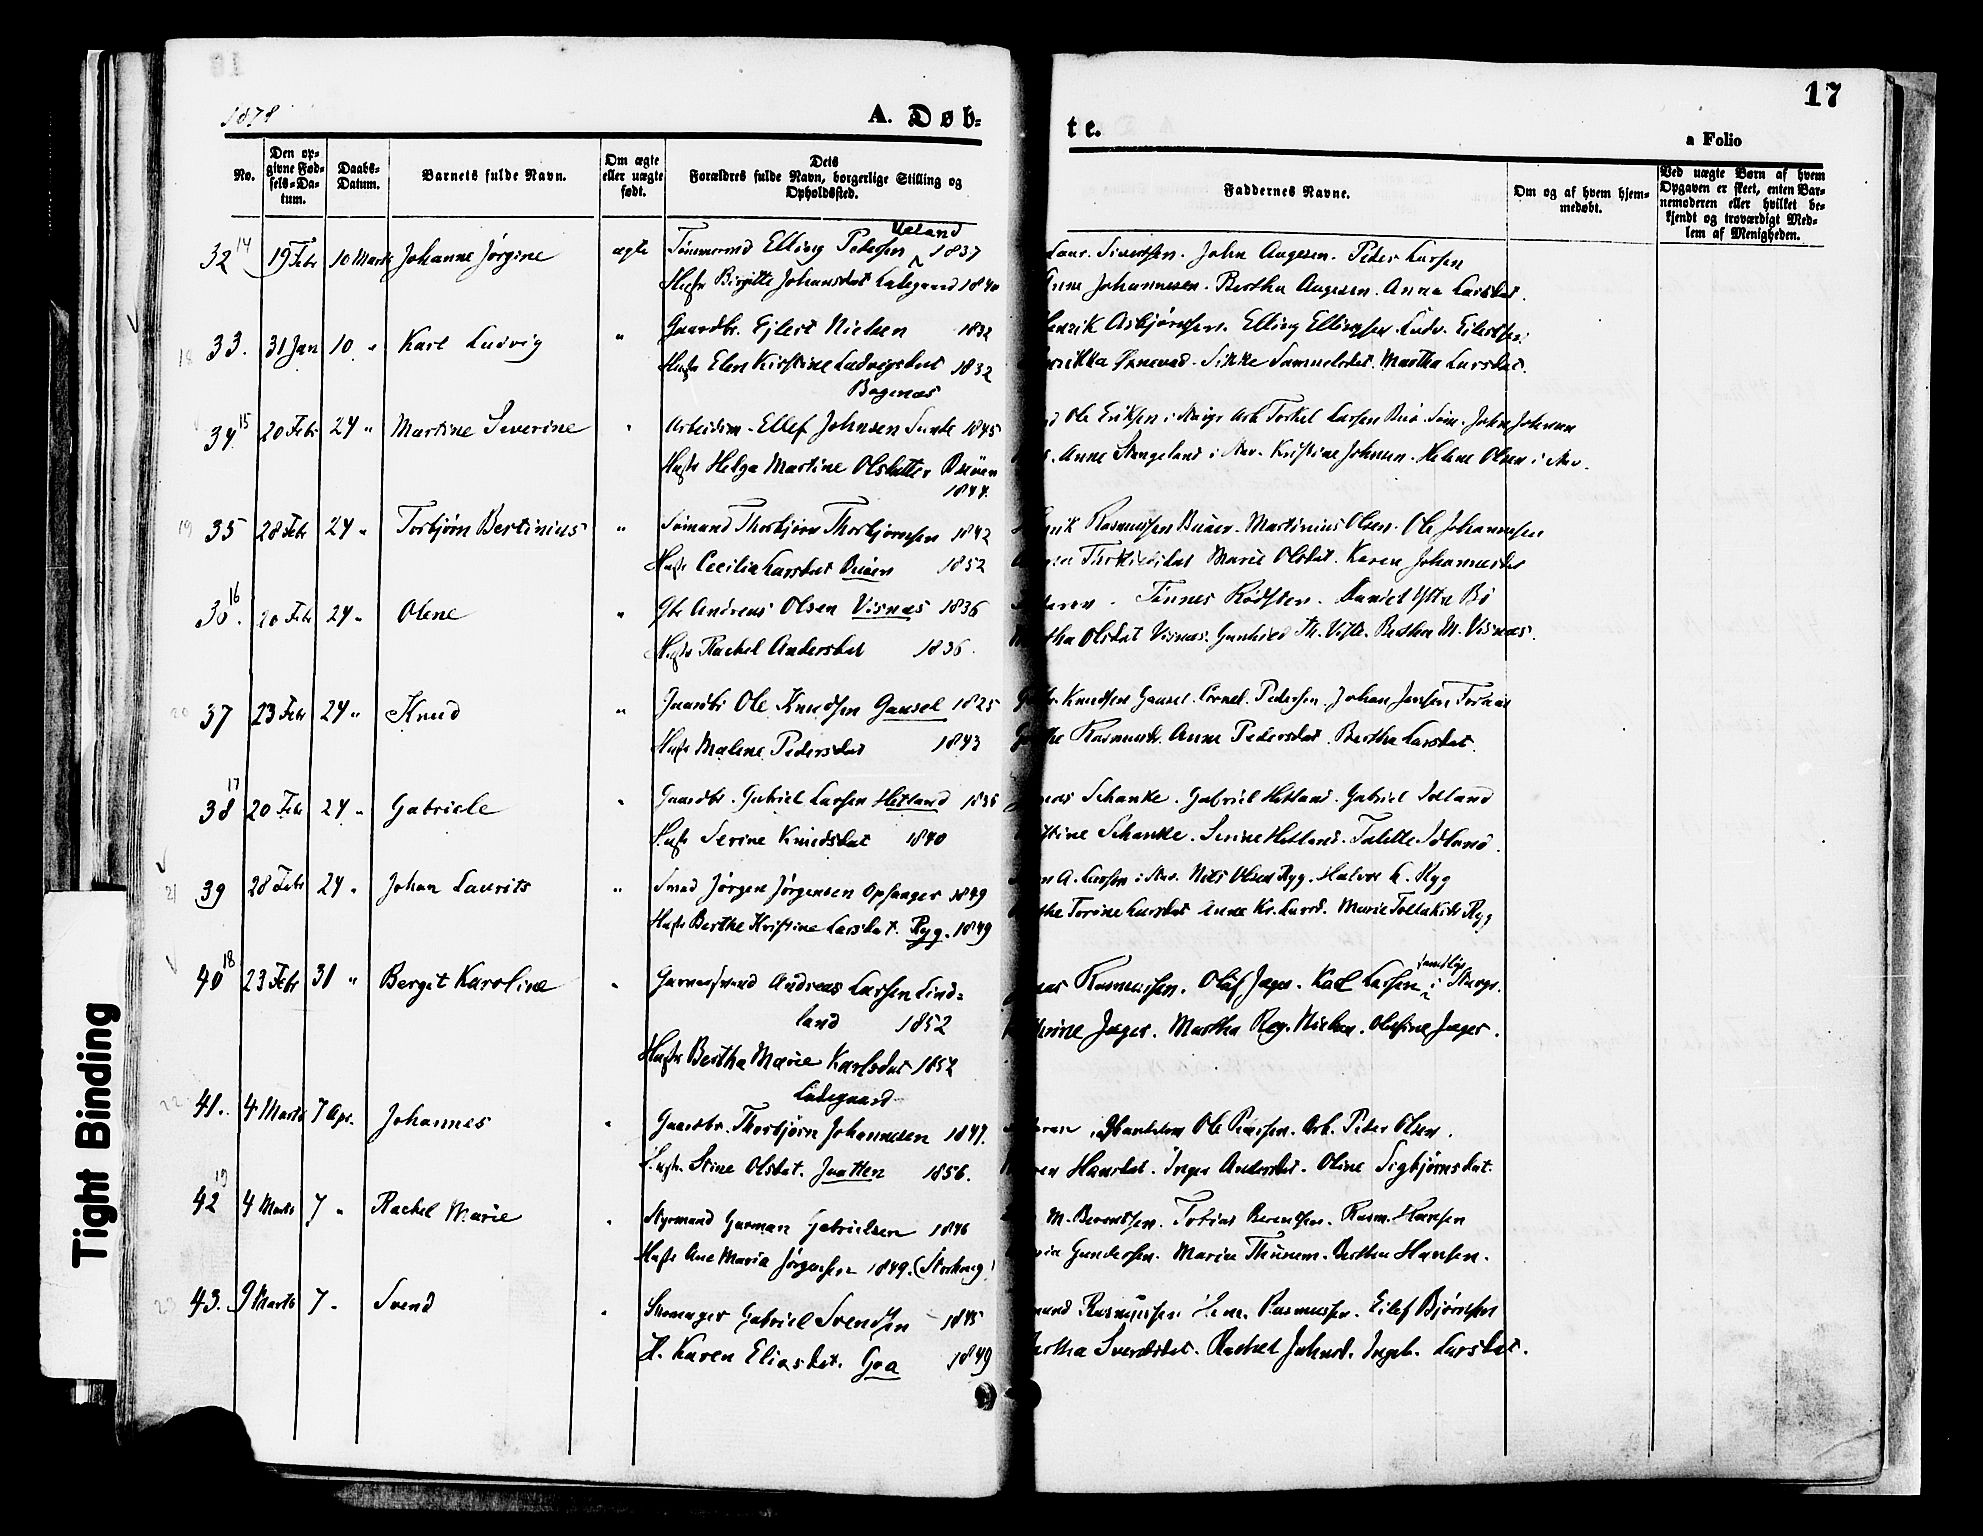 1878
A. Døb-
te.
17
a Folio
No.
Den op-
givne Fød-
sels-Da-
tum.
Daabs-
Datum.
Barnets fulde Navn.
Om ægte
eller uægte
født.
Dets
Forældres fulde Navn, borgerlige Stilling og
Opholdssted.
Faddernes Navne.
Om og af hvem hjem-
medøbt.
Ved uægte Børn af hvem
Opgaven er skeet, enten Bar-
nemoderen eller hvilket be-
kjendt og troværdigt Med-
lem af Menigheden.
32 14 19 Febr 10 Marts Johanne Jørgine ægte Tømmermd Elling Pedersen Ueland 1837
Hustr Birgitte Johansdat Ladegaard 1840
Laur. Sivertsen. John Aagesen. Peder Larsen
Anne Johannesen. Bertha Aagesen. Anna Larsdat.
18 33. 31 Jan 10 " Karl Ludvig " Gaardbr. Ejlert Nielsen 1832
Hustr Elen Kirstine Ludvigsdat 1832
Bogenæs
Henrik Asbjørnsen. Elling Ellingsen. Ludv. Eilertsen.
Sikke Sammelsdat. Martha Larsdat.
34 15 20 Febr 24 " Martine Severine " Arbeidsm. Ellef Johnsen Sunde 1845
Hustr Helga Martine Olsdatter Buøen
1844.
Ole Eriksen i Stavgr Arb. Torkel Larsen Buø. Søm. John Johnsen
Anne Stangeland i Stav. Kristine Johnsen. Helene Olsen i Stav.
19 35 28 Febr 24 " Torbjørn Bertinius " Sømand Thorbjørn Thorbjørnsen 1842
Hustr Cecilia Larsdat Buøen 1852
Henrik Rasmussen Buøen. Martinius Olsen. Ole Johannesen
Marie Olsdat. Karen Johannesdat
36. 16 20 Febr 24 " Olene " Gbr Andreas Olsen Visnæs 1836
Hustr Rachel Andersdat 1836.
Faderen. Tønnes Rødsten. Daniel Bø
Martha Olsdat Visnæs. Gunhild Th. Viste. Bertha M. Visnæs.
20 37 23 Febr 24 " Knud " Gaardbr Ole Knudsen Gausel 1825
Hustr Malene Pedersdat 1843
Knudsen Gausel. Cornel. Pedersen. Johan Jensen Fornæs
Rasmusdr. Anne Pedersdat. Bertha Larsdat.
38 17 20 Febr 24 " Gabriele " Gaardbr. Gabriel Larsen Hetland 1835
Hustr Serine Knudsdat 1840
Jonas Schanke. Gabriel Hetland. Gabriel Soland
Kristine Schanke. Serine Hetland. Talette Soland.
21 39 28 Febr 24 " Johan Laurits " Smed Jørgen Jørgensen Opsanger 1849
Hustr Berthe Kristine Larsdat. Ryg. 1849
A. Larsen i Stav. Nils Olsen Ryg. Halvor L. Ryg
Torine Larsdat Anne Kr. Larsd. Marie Tollaksdt Ryg
40 18 23 Febr 31 " Berget Karoline " Garversvend Andreas Larsen Lind-
land 1852
Hustr Bertha Marie Karlsdat 1852
Ladegaard
Rasmussen. Olaf Jæger. Karl Larsen samtlige i Stavgr.
Jæger. Martha Reg. Nielsen. Olufine Jæger.
22 41. 4 Marts 7 Apr. Johannes " Gaardbr. Thorbjørn Johannesen 1847.
Hustr. Stine Olsdat. Jaatten 1856.
Faderen Ole Peersen. Arb. Peder Olsen.
Karen Hansdat. Inger Andersdat. Oline Sigbjørnsdat.
42 19 4 Marts 7 " Rachel Marie " Styrmand Garman Gabrielsen 1846
Hustr Ane Maria Jørgensen 1849. (Storhaug)
M. Berentsen. Tobias Berentsen. Rasm. Hansen
Gundersen. Marie Thunem. Bertha Hansen.
23 43. 9 Marts 7 " Svend " Skomager Gabriel Svendsen 1845
H. Karen Eliasdat. Goa 1849
Rasmussen Rasmussen. Eilef Bjørnsen
Bertha Svendsdat. Rachel Johnsd. Ingeb. Larsdat.
Tight Binding